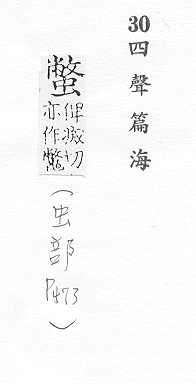 30
四聲篇海
蟞
俾滅切
亦作
(虫部 P473)